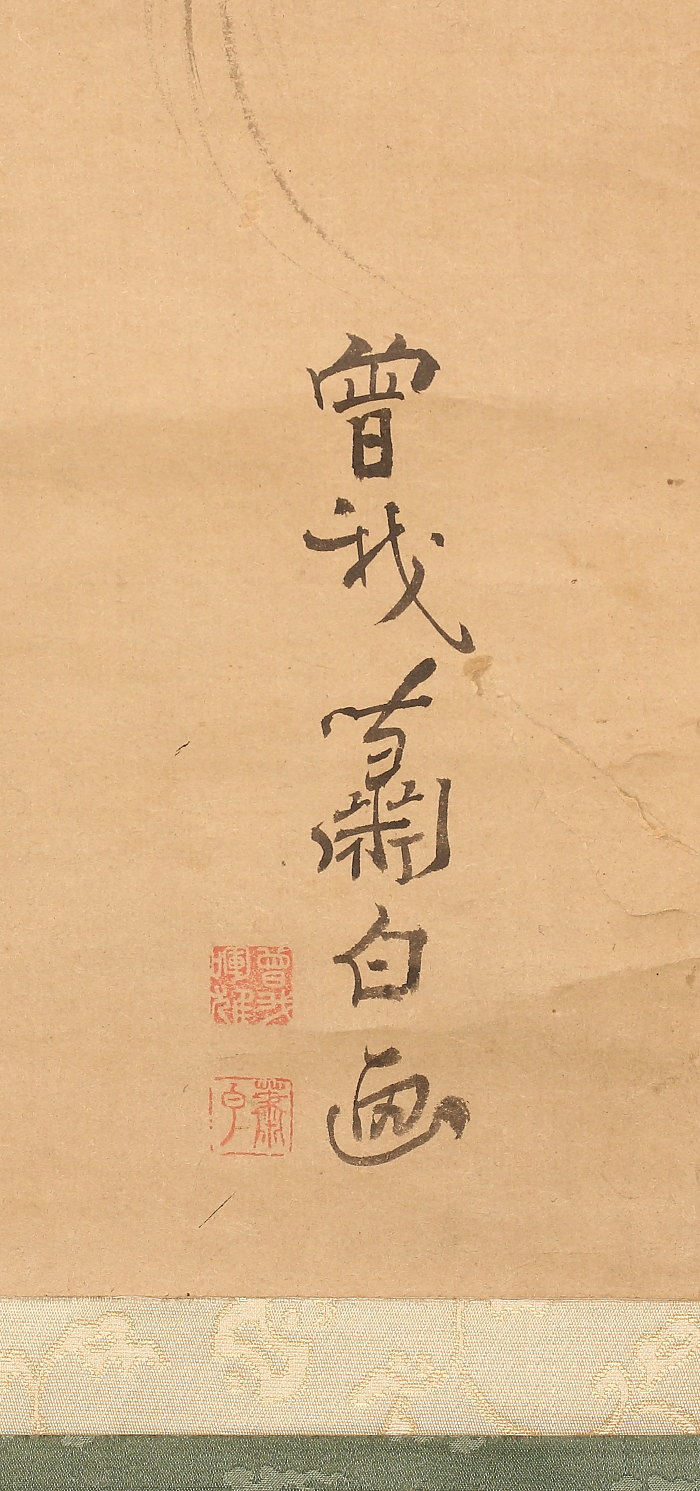 曾我蕭白画
曾我
暉雄
蕭白